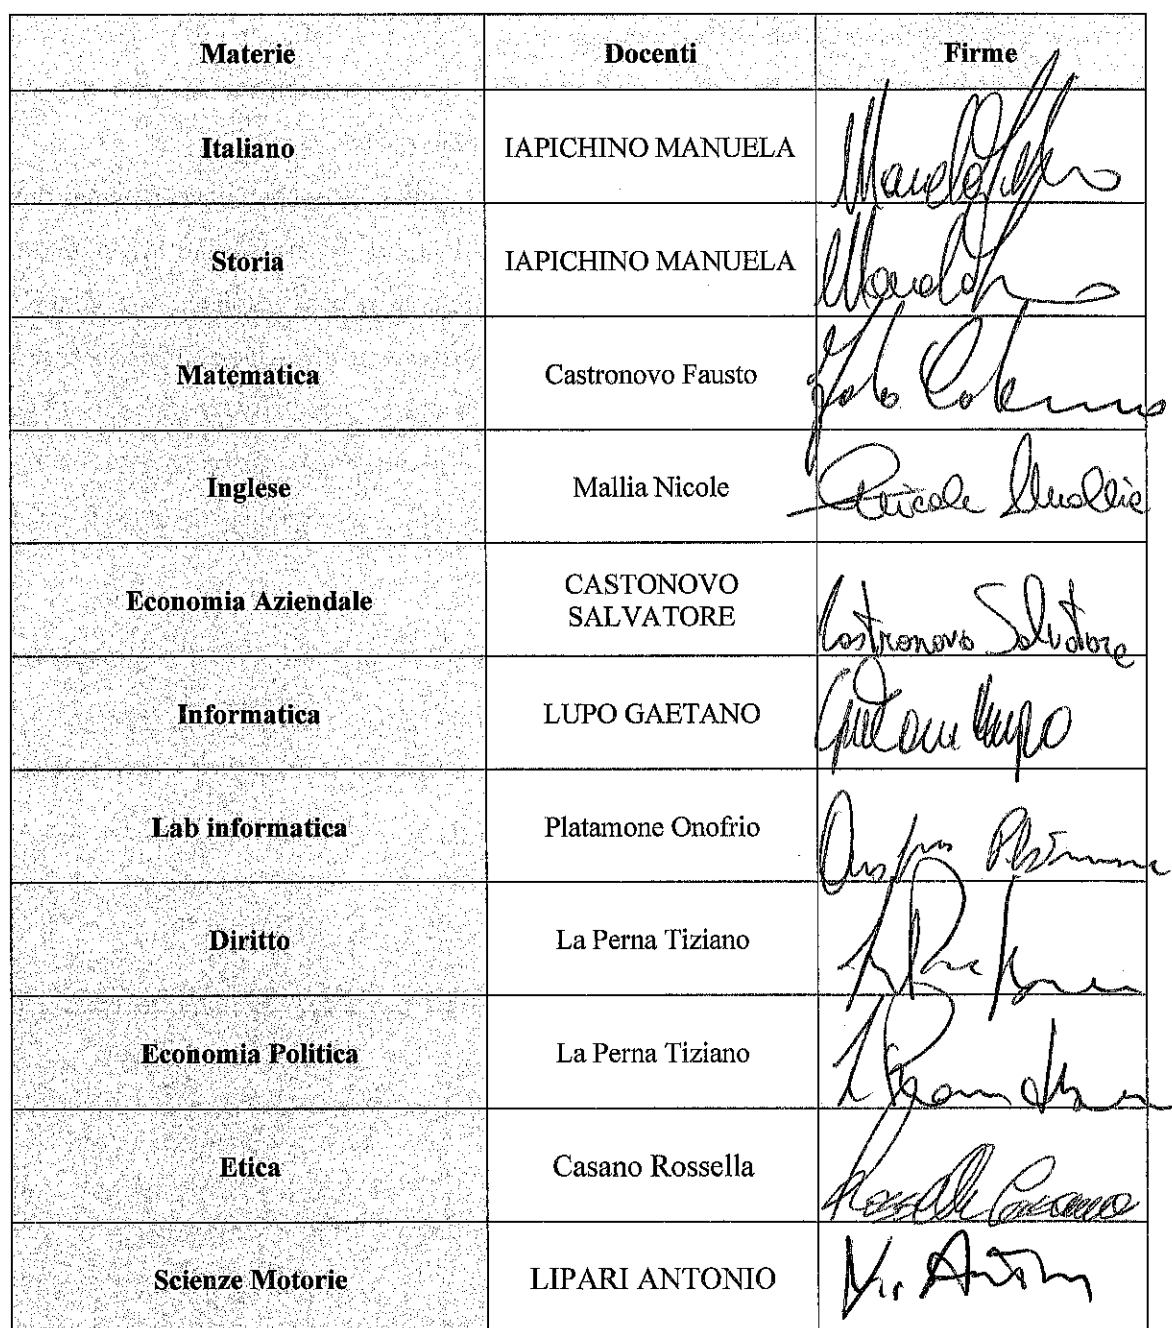 Materie Docenti Firme
Italiano IAPICHINO MANUELA
Storia IAPICHINO MANUELA
Matematica Castronovo Fausto
Inglese Mallia Nicole Nicole Mallia
Economia Aziendale CASTONOVO
SALVATORE Castronovo Salvatore
Informatica LUPO GAETANO Gaetano Lupo
Lab informatica Platamone Onofrio
Diritto La Perna Tiziano
Economia Politica La Perna Tiziano
Etica Casano Rossella Rossella Casano
Scienze Motorie LIPARI ANTONIO